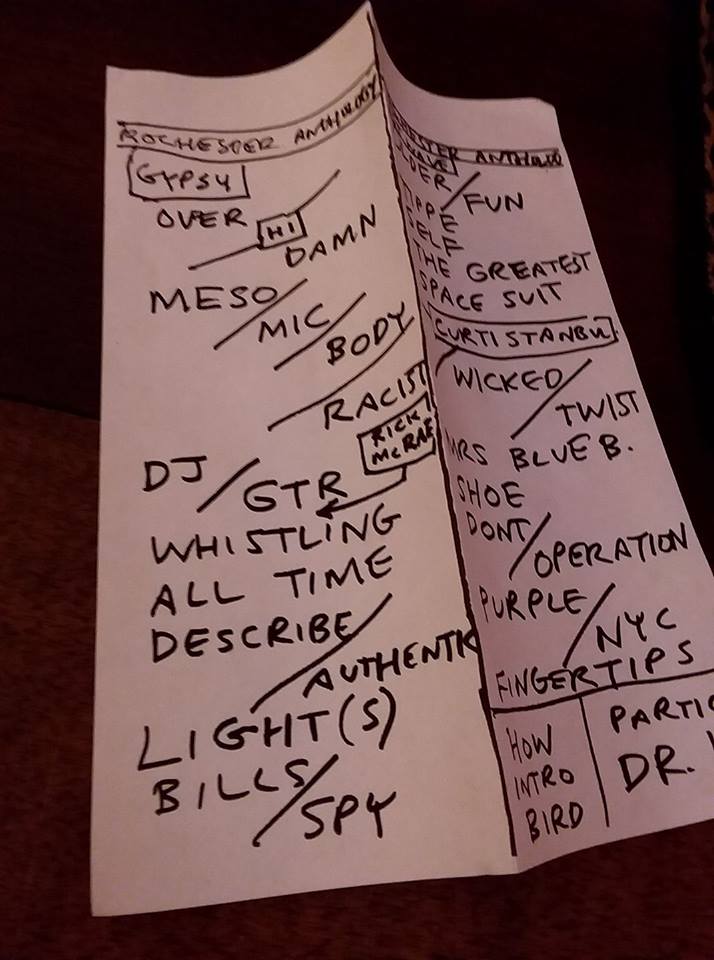 ROCHESTER ANTHOLOGY
GYPSY
OVER / HI
DAMN
MESO /
MIC /
BODY /
RACIST
RICK
MCRAE
DJ / GTR
WHISTLING
ALL TIME
DESCRIBE /
AUTHENTIK
LIGHT(S)
BILLS /
SPY
ANTHOLO
/ FUN
SELF
THE GREATEST
SPACE SUIT
CURTISTANBUL
WICKED /
TWIST
MRS BLUE B.
SHOE
DONT /
OPERATION
PURPLE /
NYC
FINGERTIPS
HOW
INTRO
BIRD
PARTIC
DR.